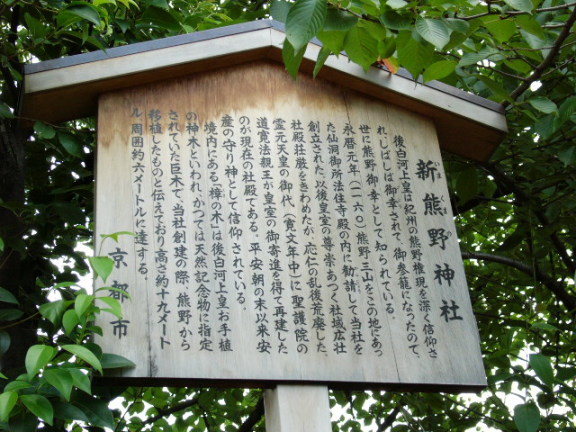 新熊野神社
いま くま の
後白河上皇は紀州の熊野権現を深く信仰さ
れ、しばしば御幸されて、御参籠になったので、
世に熊野御幸として知られている。
永暦元年（一一六〇）熊野三山をこの地にあっ
た仙洞御所法住寺殿の内に勧請して当社を
創立された。以後皇室の尊崇あつく社域広壮
社殿荘厳をきわめたが、応仁の乱後荒廃した。
霊元天皇の御代（寛文年中）に聖護院の
道寛法親王が皇室の御寄進を得て再建した
のが現在の社殿である。平安朝の末以来、安
産の守り神として信仰されている。
境内にある〈樟の木〉は後白河上皇お手植
の神木といわれ、かつては天然記念物に指定
されていた巨木で、当社創建の際、熊野から
移植したものと伝えており高さ約十九メート
ル、周囲約六メートルに達する。
京都市